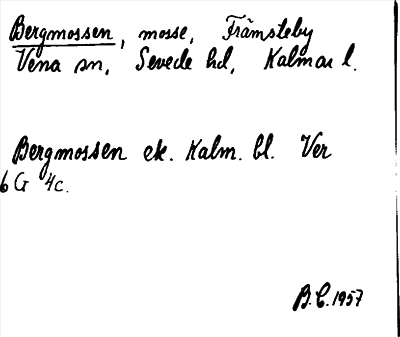 Bergmossen, mosse, Främsteby
Vena sn, Sevede hd, Kalmar l.
Bergmossen ek. Kalm. bl. Ver
6 G 4c.
B.C. 1957